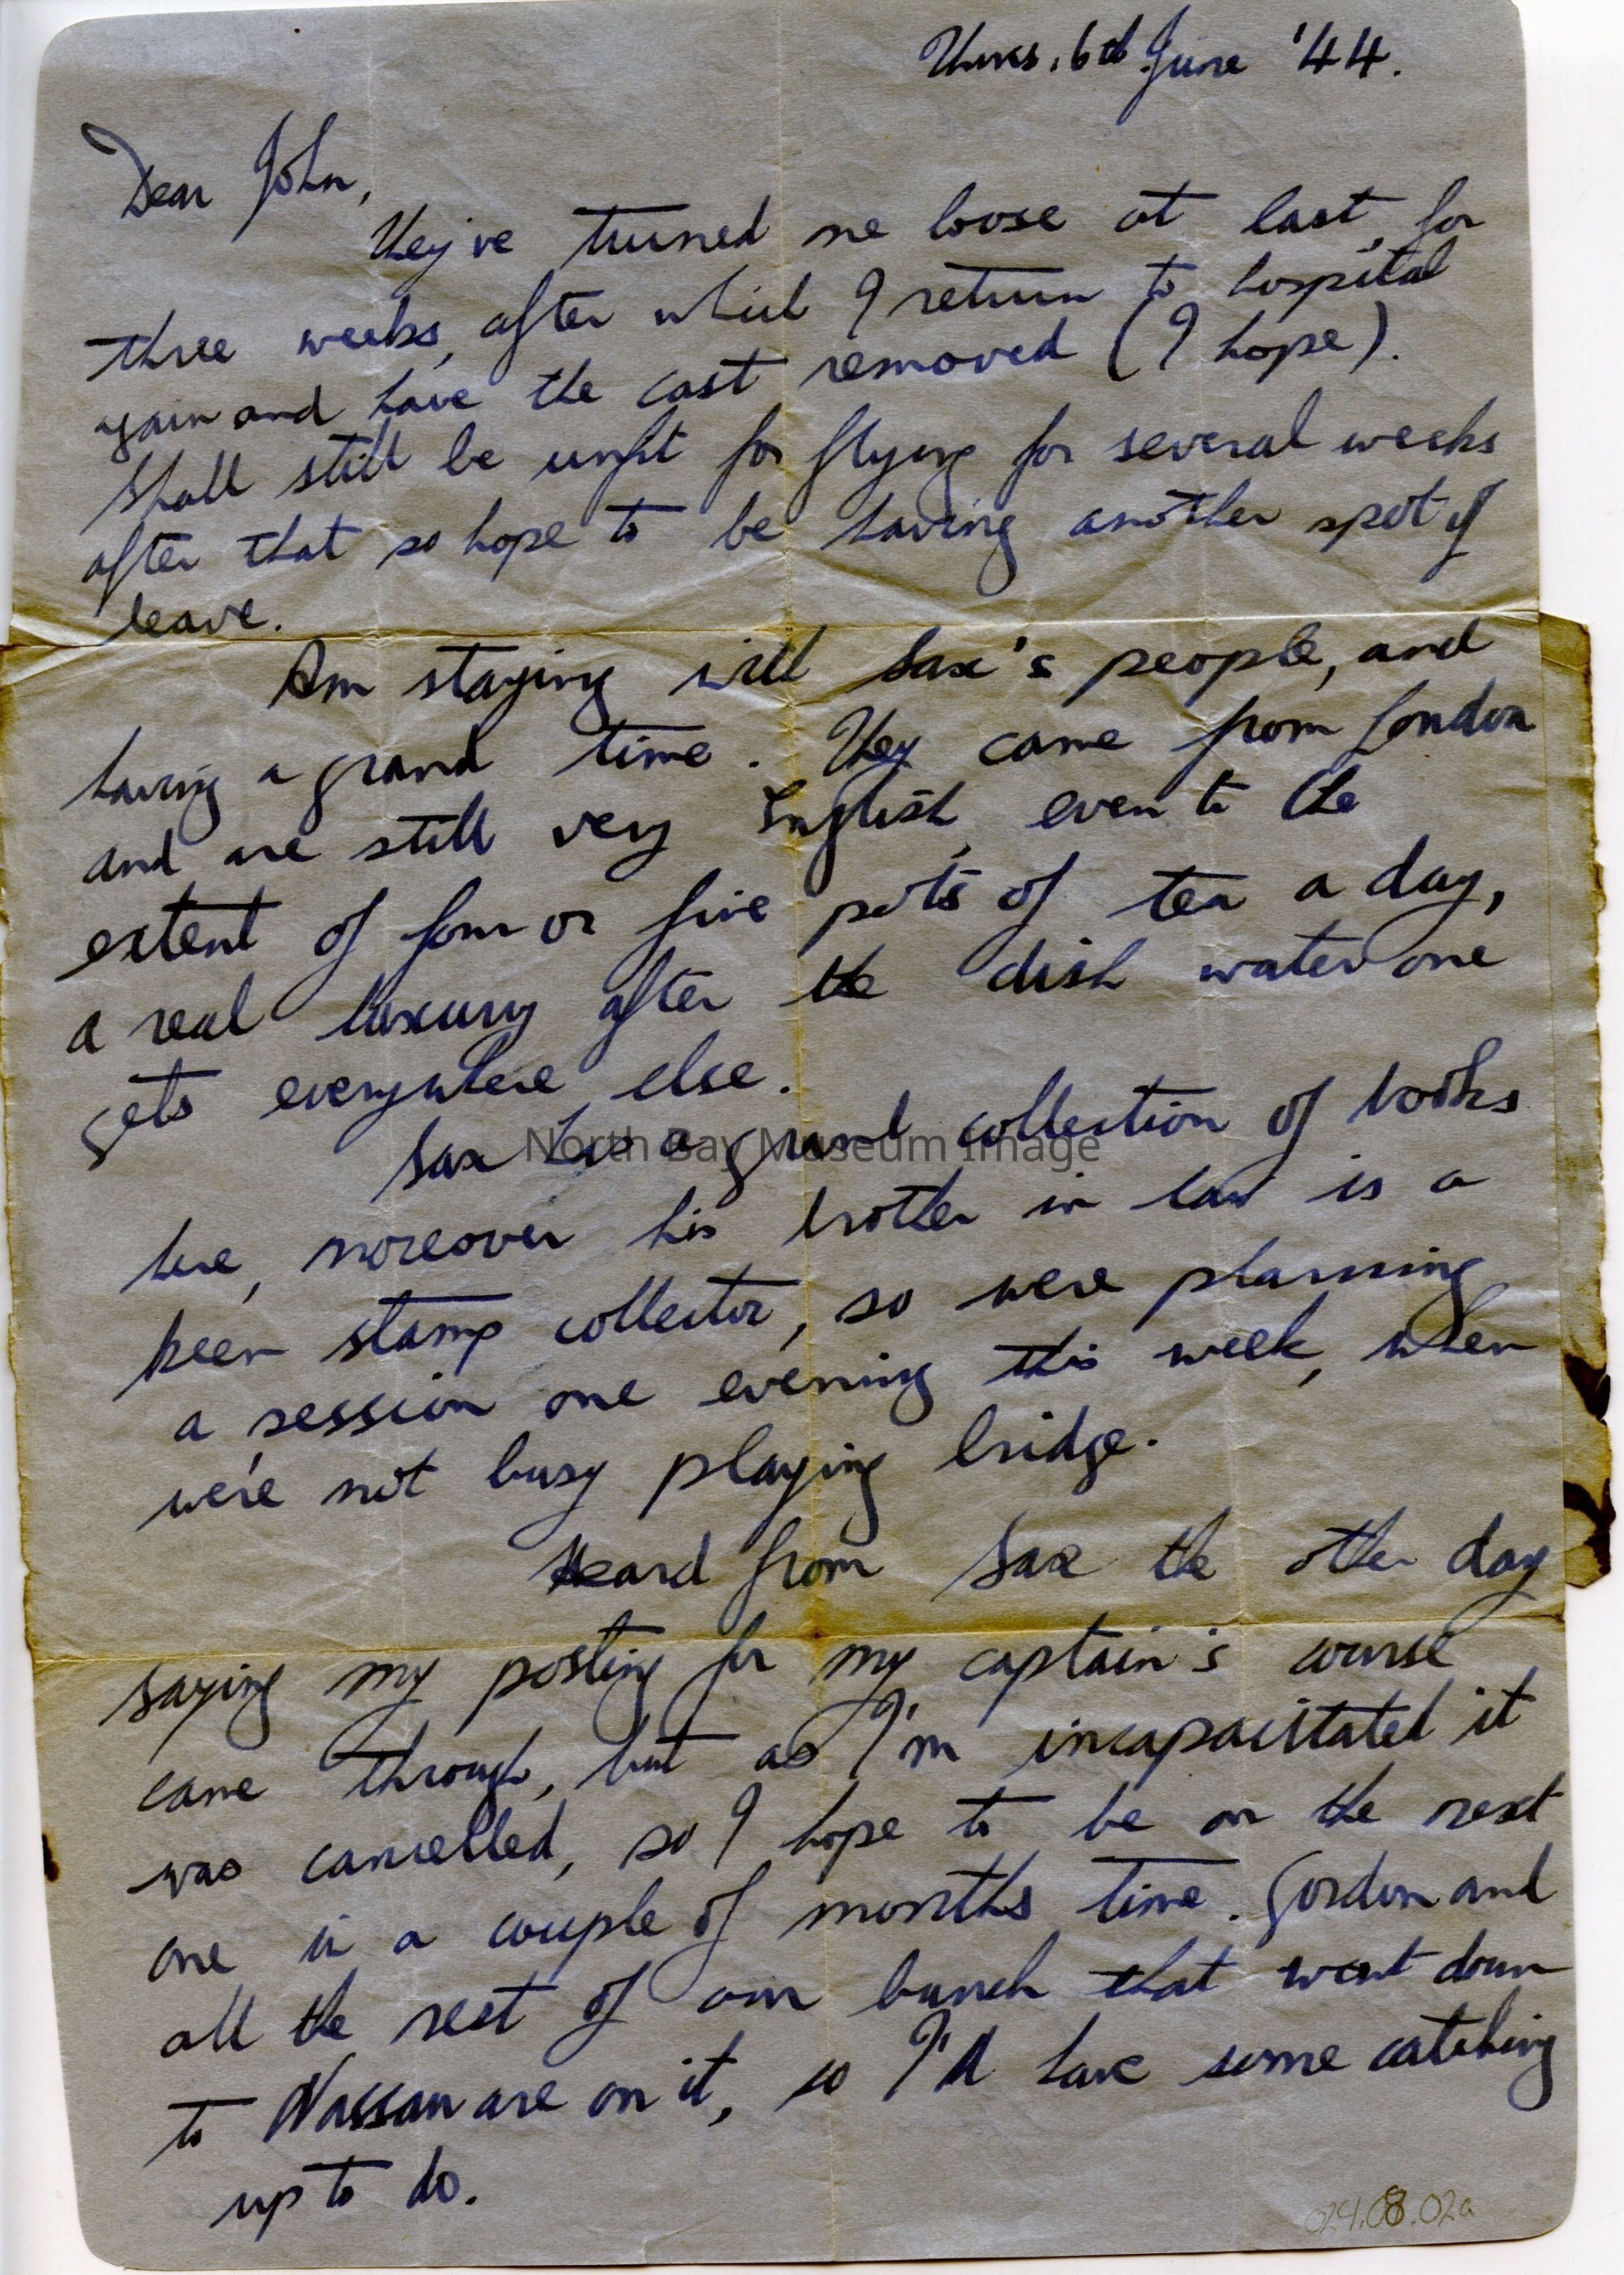 Thurs. 6th June '44.
Dear John,
They've turned me loose at last, for
three weeks, after which I return to hospital
again and have the cast removed (I hope).
Shall still be unfit for flying for several weeks
after that so hope to be having another spot of
leave.
Am staying with Sax's people, and
having a grand time. They came from London
and are still very English, even to the
extent of four or five pots of tea a day,
a real luxury after the dish water one
gets everywhere else.
Sax has a grand collection of books
North Bay Museum Image
here, moreover his brother in law is a
keen stamp collector, so were planning
a session one evening this week, when
we're not busy playing bridge.
Heard from Sax the other day
saying my posting for my captain's course
came through, but as I'm incapacitated it
was cancelled, so I hope to be on the next
one in a couple of months time. Gordon and
all the rest of our bunch that went down
to Nassau are on it, so I'll have some catching
up to do.
024.08.02a